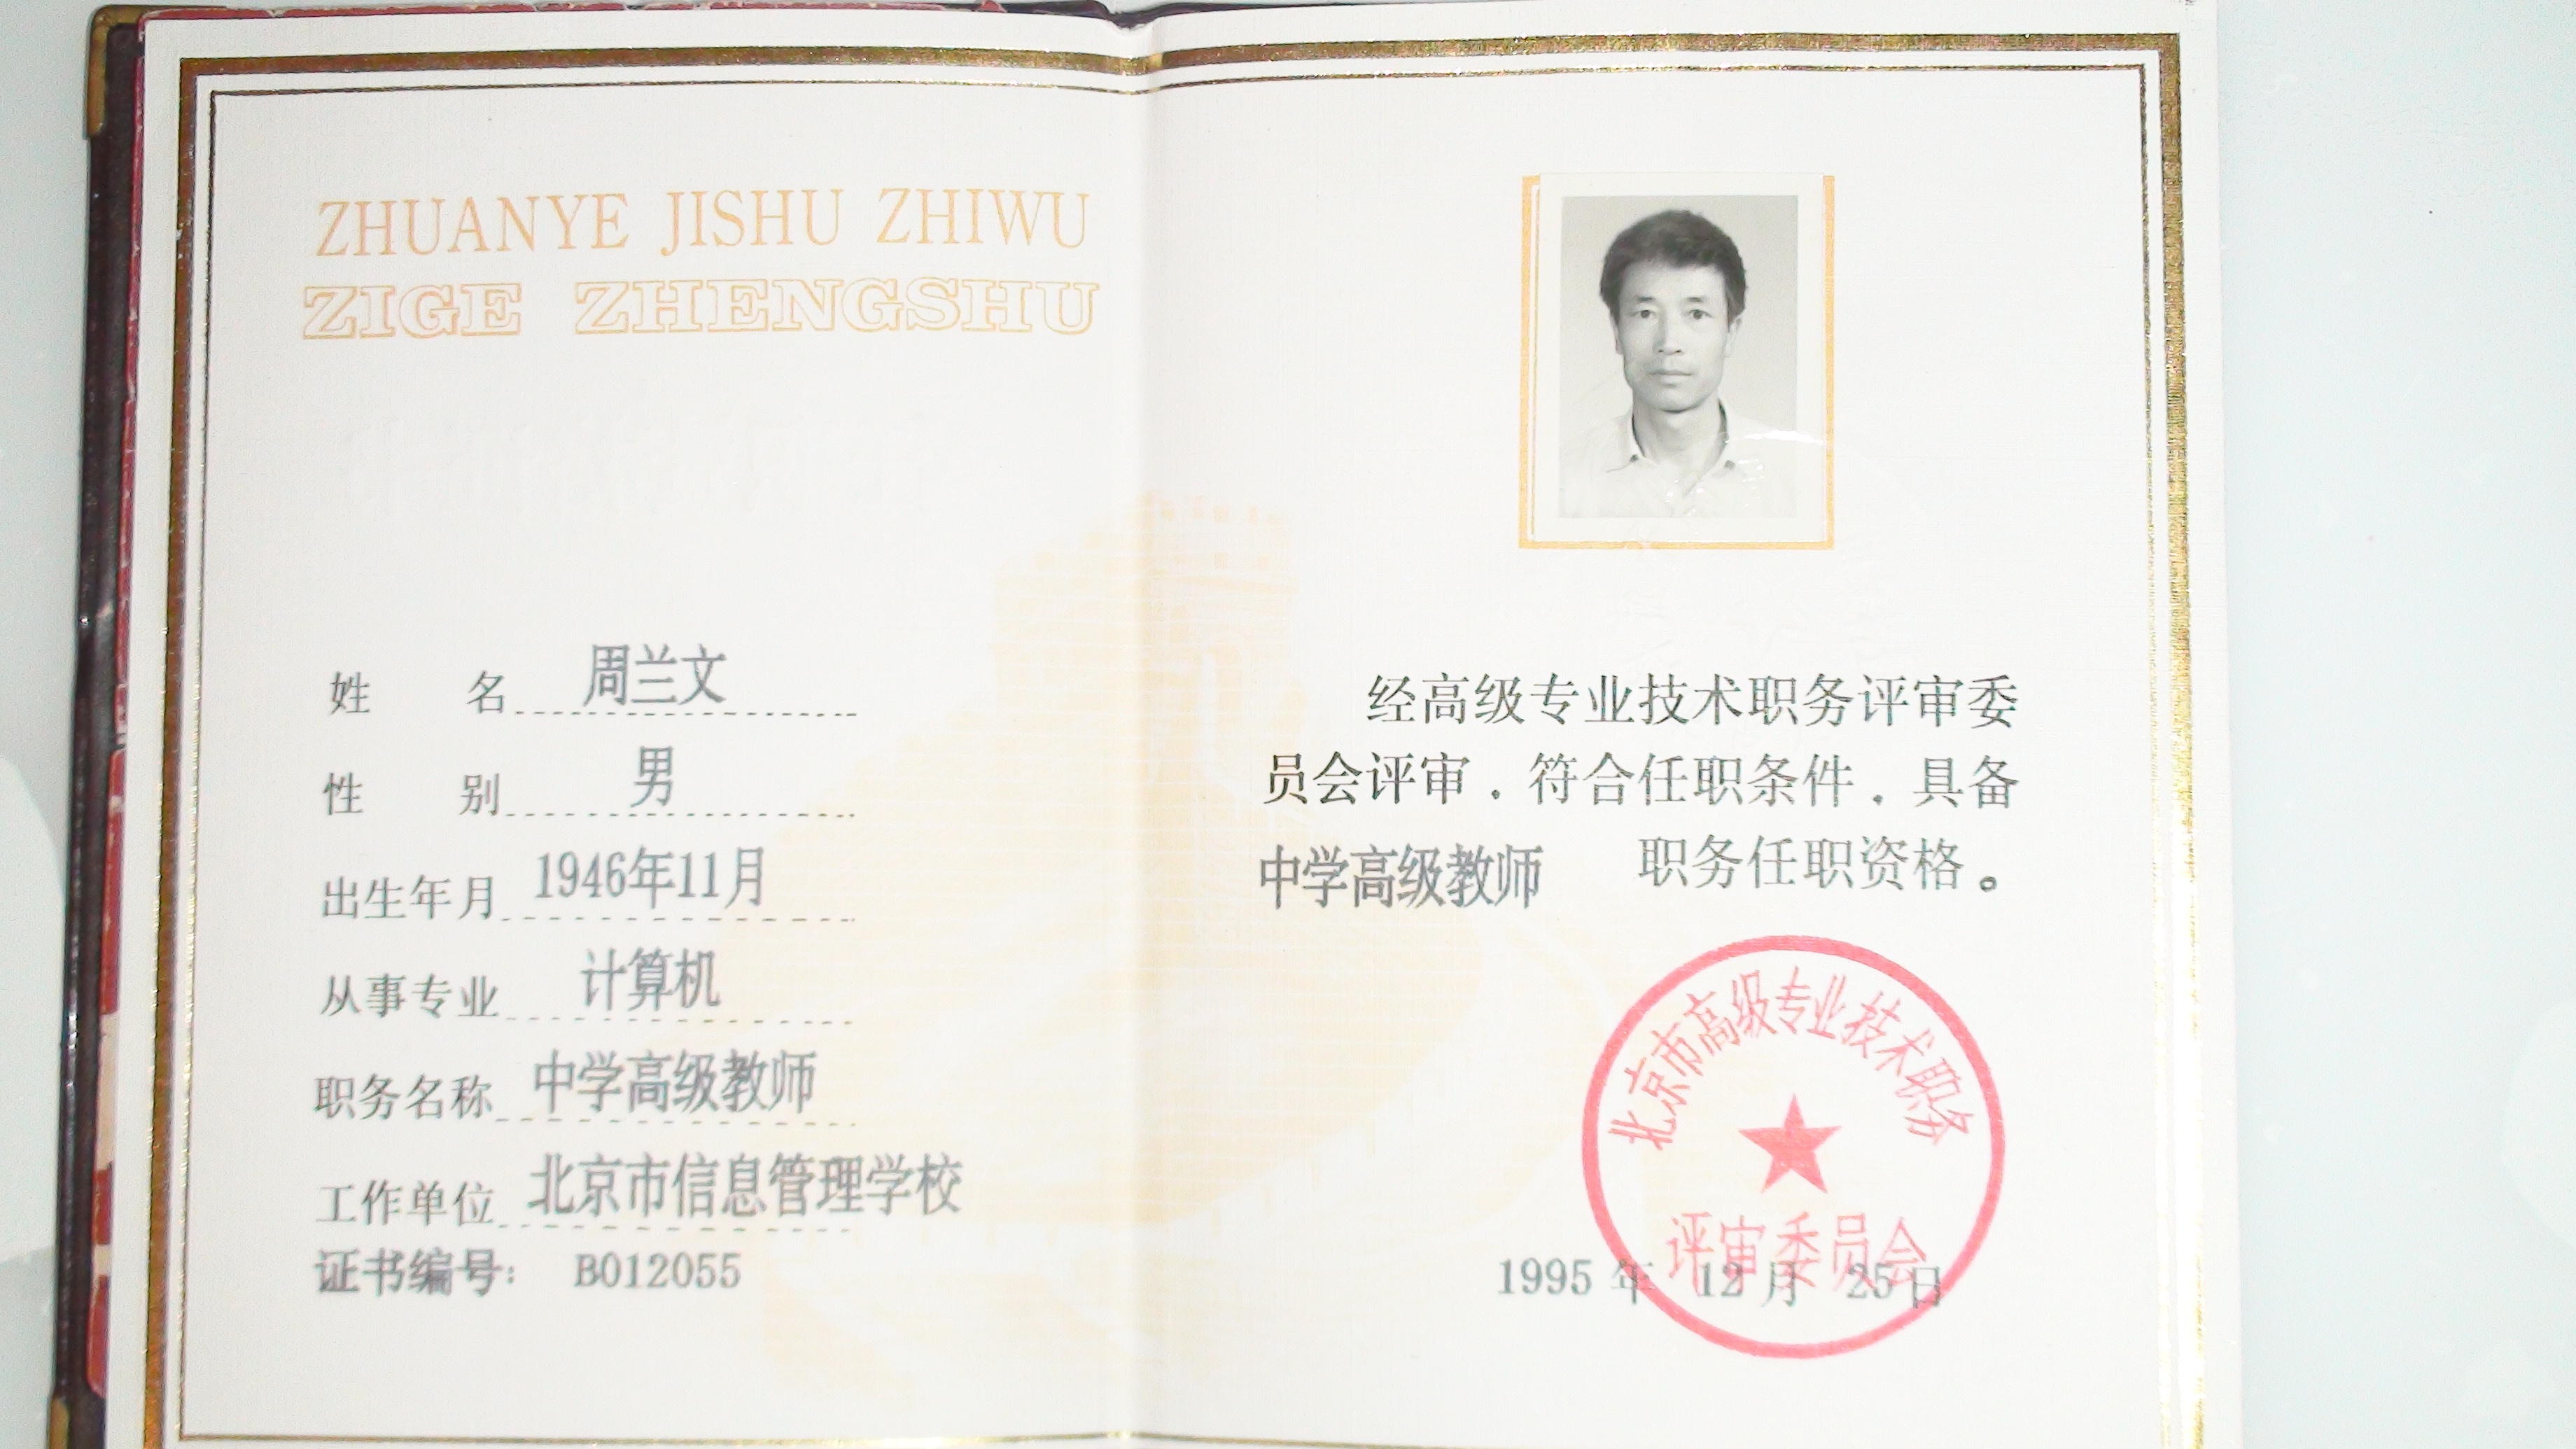 ZHUANYE JISHU ZHIWU
ZIGE ZHENGSHU
姓 名 周兰文
性 别 男
出生年月 1946年11月
从事专业 计算机
职务名称 中学高级教师
工作单位 北京市信息管理学校
证书编号: B012055
经高级专业技术职务评审委
员会评审,符合任职条件,具备
中学高级教师 职务任职资格。
北京市高级专业技术职务
评审委员会
1995 年 12 月 25 日